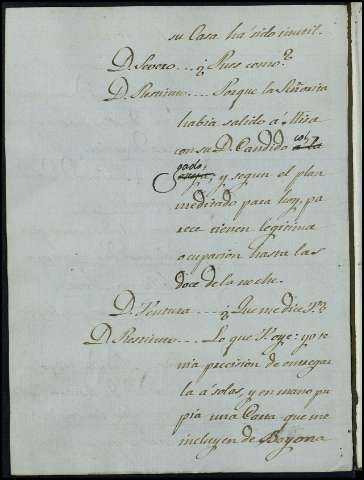 su Casa ha sido inutil.
D. Severo... ¿Pues como?
D. Restituto.... Porque la Señorita
havia salido á Misa
con su D. Candido col
gado, y segun el plan
meditado para hoy, pa
rece tienen legitima
ocupacion hasta las
doce de la noche.
D. Ventura.... ¿Que me dice Vm?
D. Restituto... Lo que V. oye: yo te
nia precision de entregar
la á solas, y en mano pro
pia una Carta que me
incluyen de Bayona